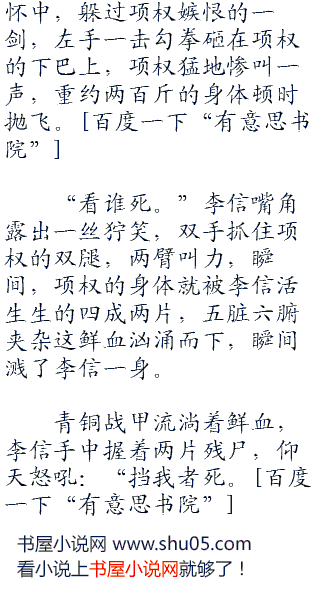 怀中，躲过项权嫉恨的一
剑，左手一击勾拳砸在项权
的下巴上，项权猛地惨叫一
声，重约两百斤的身体顿时
抛飞。[百度一下“有意思书
院”]
“看谁死。”李信嘴角
露出一丝狞笑，双手抓住项
权的双腿，两臂叫力，瞬
间，项权的身体就被李信活
生生的四成两片，五脏六腑
夹杂这鲜血汹涌而下，瞬间
溅了李信一身。
青铜战甲流淌着鲜血，
李信手中握着两片残尸，仰
天怒吼：“挡我者死。[百度
一下“有意思书院”]
书屋小说网 www.shu05.com
看小说上书屋小说网就够了！